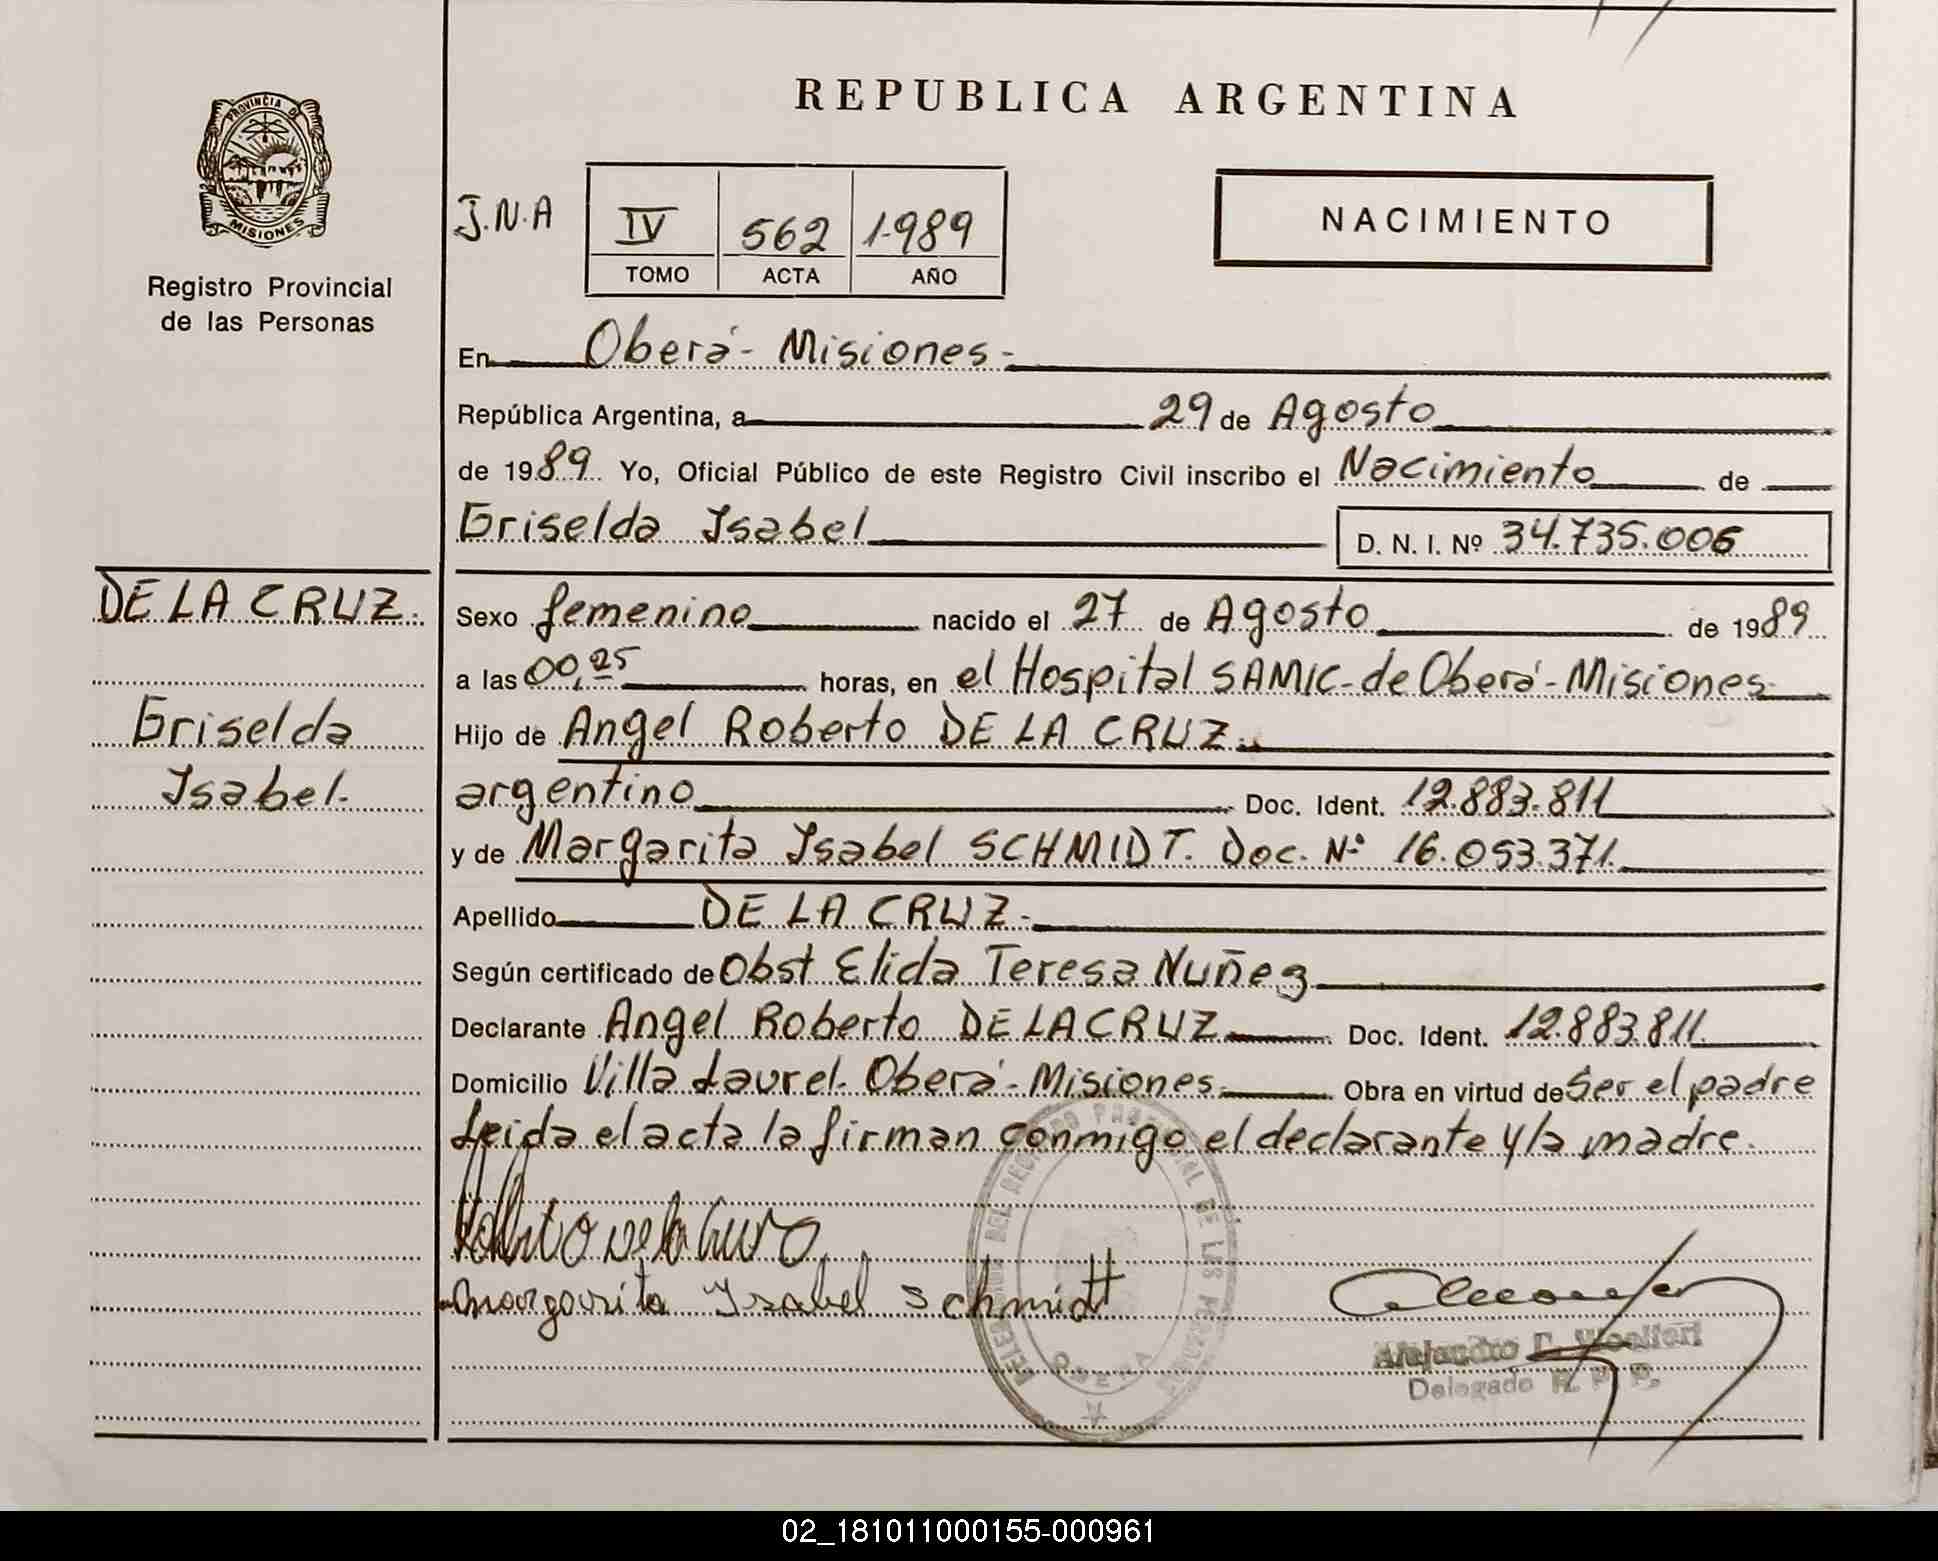 REPUBLICA ARGENTINA
PROVINCIA DE
MISIONES
Registro Provincial
de las Personas
J.N.A
IV 562 1.989
TOMO ACTA AÑO
NACIMIENTO
En Oberá - Misiones -
República Argentina, a 29 de Agosto
de 1989 Yo, Oficial Público de este Registro Civil inscribo el Nacimiento de
Griselda Isabel D. N. I. Nº 34.735.006
DE LA CRUZ.
Griselda
Isabel.
Sexo femenino nacido el 27 de Agosto de 1989
a las 00,25 horas, en el Hospital SAMIC - de Oberá - Misiones
Hijo de Angel Roberto DE LA CRUZ.
argentino Doc. Ident. 12.883.811
y de Margarita Isabel SCHMIDT. Doc. Nº 16.053.371.
Apellido DE LA CRUZ.
Según certificado de Obst Elida Teresa Nuñez
Declarante Angel Roberto DE LA CRUZ Doc. Ident. 12.883.811
Domicilio Villa Laurel. Oberá - Misiones. Obra en virtud de Ser el padre
Leida el acta la firman conmigo el declarante y la madre.
Margarita Isabel Schmidt
DEL REGISTRO PROVINCIAL DE LAS PERSONAS
OBERA
Alejandro
Delegado R. P. P.
02_181011000155-000961